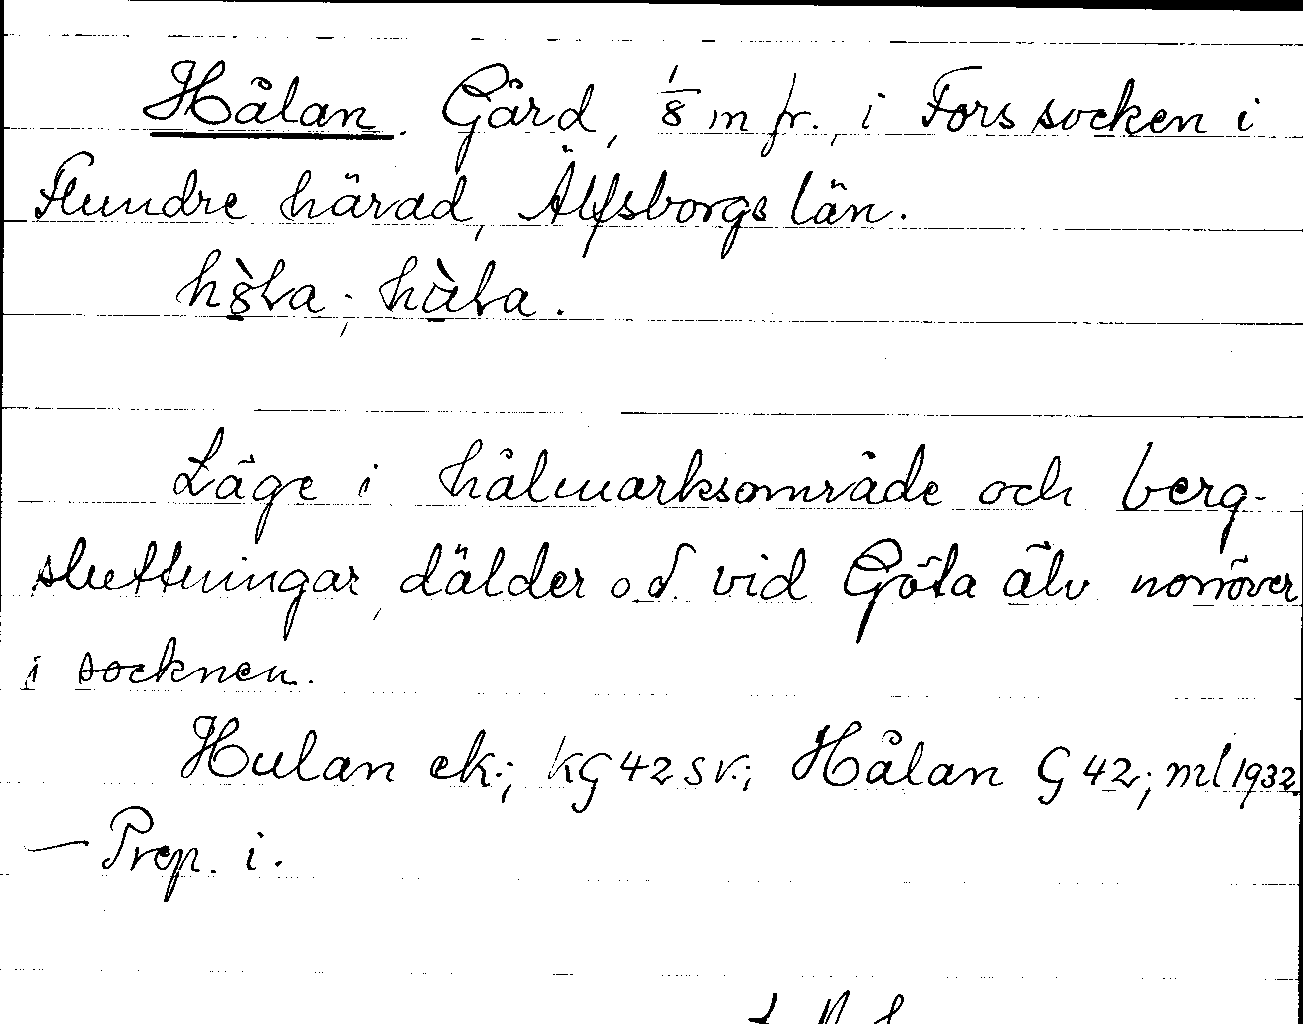 Hålan. Gård, 1/8 m fr., i Fors socken i
Flundre härad, Älfsborgs län.
Läge i hålmarksområde och berg-
sluttningar, dälder o.d. vid Göta älv norröver
i socknen.
Hulan ek.; KG 42 sv.; Hålan G 42; ml 1932.
— Prep. i.